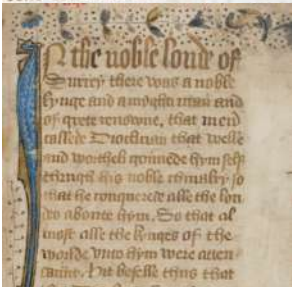 In the noble londe of
Surrey there was a noble
kynge and a myghti man and
of grete renowne, that men
callede Dioclician that welle
and worthely gouuede hym self
thurugh his noble chiualry so
that he conquerede alle the lon
des aboute hym. So that al
most alle the kynges of the
worlde vnto hym were atten
daunt. hit befelle thus that